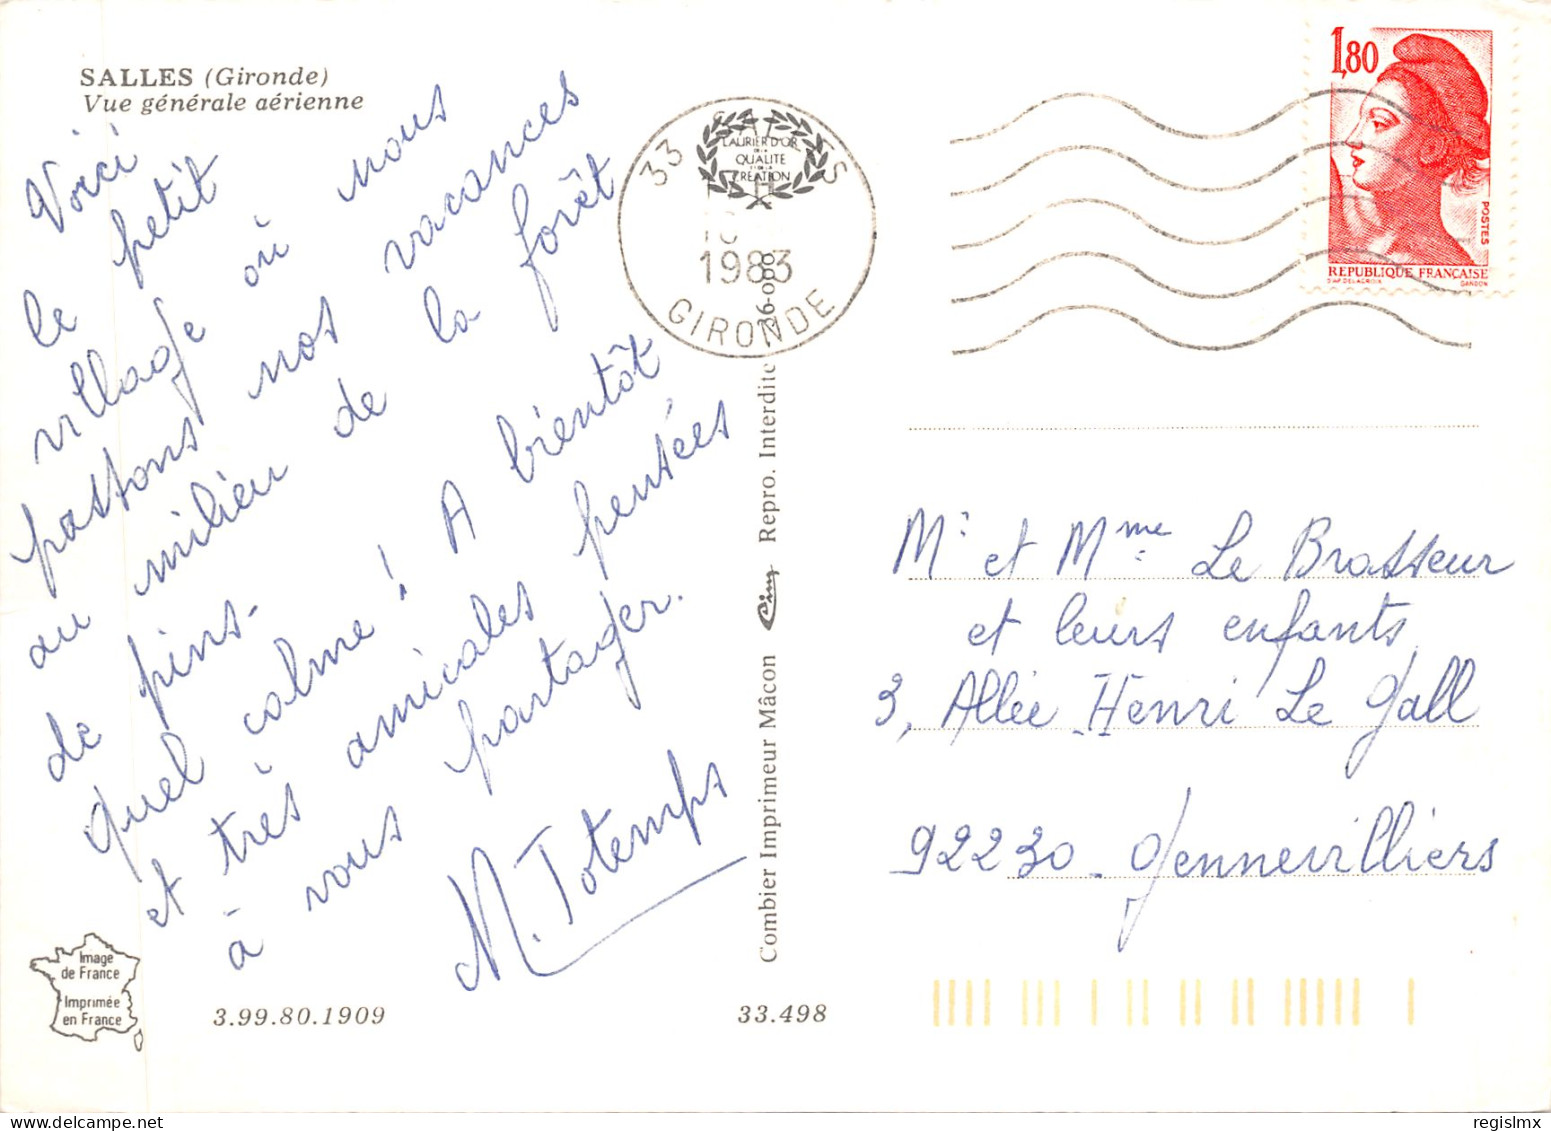 SALLES (Gironde)
Vue générale aérienne
Voici
le petit
village où nous
passons nos vacances
au milieu de la forêt
de pins.
Quel calme! A bientôt
et très amicales pensées
à vous partager.
M. Totemps
Image
de France
Imprimée
en France
3.99.80.1909
33.498
Combier Imprimeur Mâcon Cim Repro. Interdite
33 SALLES
LAURIER D'OR
DE LA
QUALITE
ET DE LA
CREATION
1983
GIRONDE
1,80
POSTES
REPUBLIQUE FRANÇAISE
D'AP. DELACROIX GANDON
Mr et Mme Le Brasseur
et leurs enfants
3, Allée Henri Le Gall
92230. Gennevilliers
regislmx